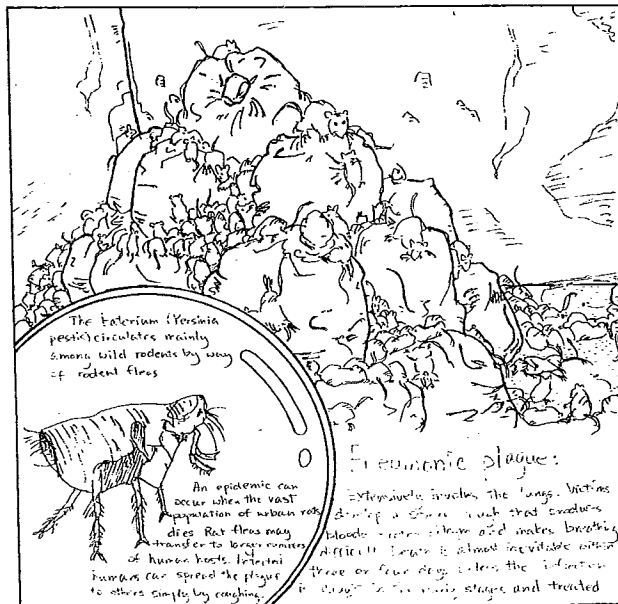 The baterium (Yersinia
pestis) circulates mainly
among wild rodents by way
of rodent fleas
An epidemic can
occur when the vast
population of urban rats
dies Rat fleas may
transfer to larger numbers
of human hosts. Infected
humans can spread the plague
to others simply by coughing.
Pneumonic plague:
Extensively involves the lungs. Victims
develop a severe cough that produces
bloody and makes breathing
difficult is almost inevitable within
three or four days unless the infection
is caught in its early stages and treated